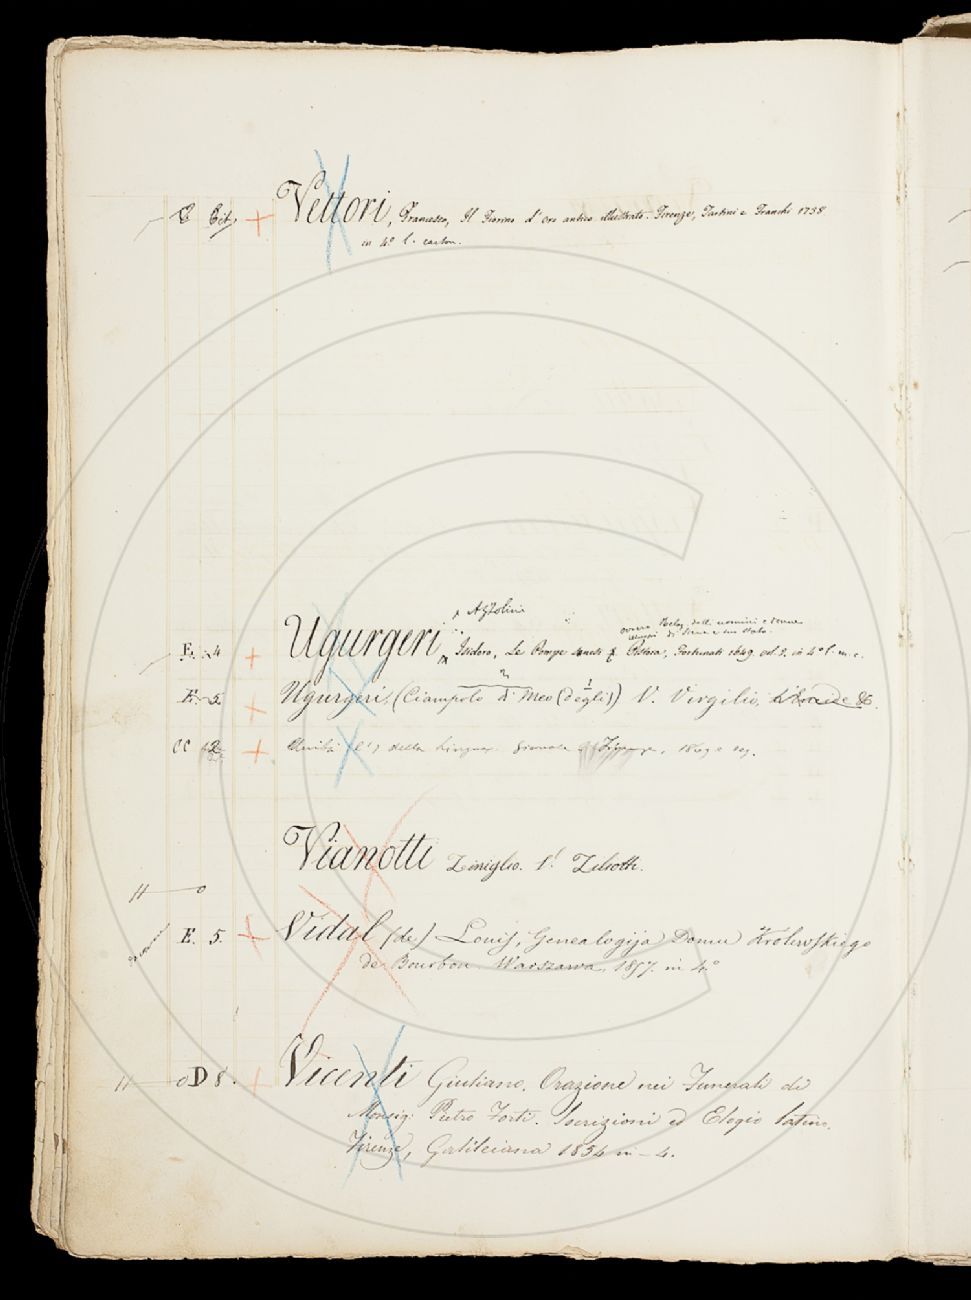 Vettori, Francesco, Il Fiorino d'oro antico illustrato. Firenze, Tartini e Franchi 1738
in 4º l. carton.
Azzolini
ovvero Relaz. delli uomini e donne
illustri di Siena e suo Stato.
E. 4 Ugurgeri Isidoro, Le Pompe Sanesi Pistoia, Fortunati 1649 vol. 2. in 4º l. m. c.
E. 5 Ugurgeri, (Ciampolo di Meo (degli)) V. Virgilio, L'Eneide &c.
CC 2 Unità (l') della Lingua. Giornale Firenze, 1869 e seg.
Vianotti V. Zeliotti.
E. 5. Vidal (de) Louis, Genealogija Domu Królewskiego
de Bourbon Warszawa, 1857. in 4º
D 8. Vicenti Giuliano. Orazione nei Funerali di
Monsig. Pietro Forti. Iscrizioni ed Elogio latino.
Firenze, Galileiana 1854 in-4.